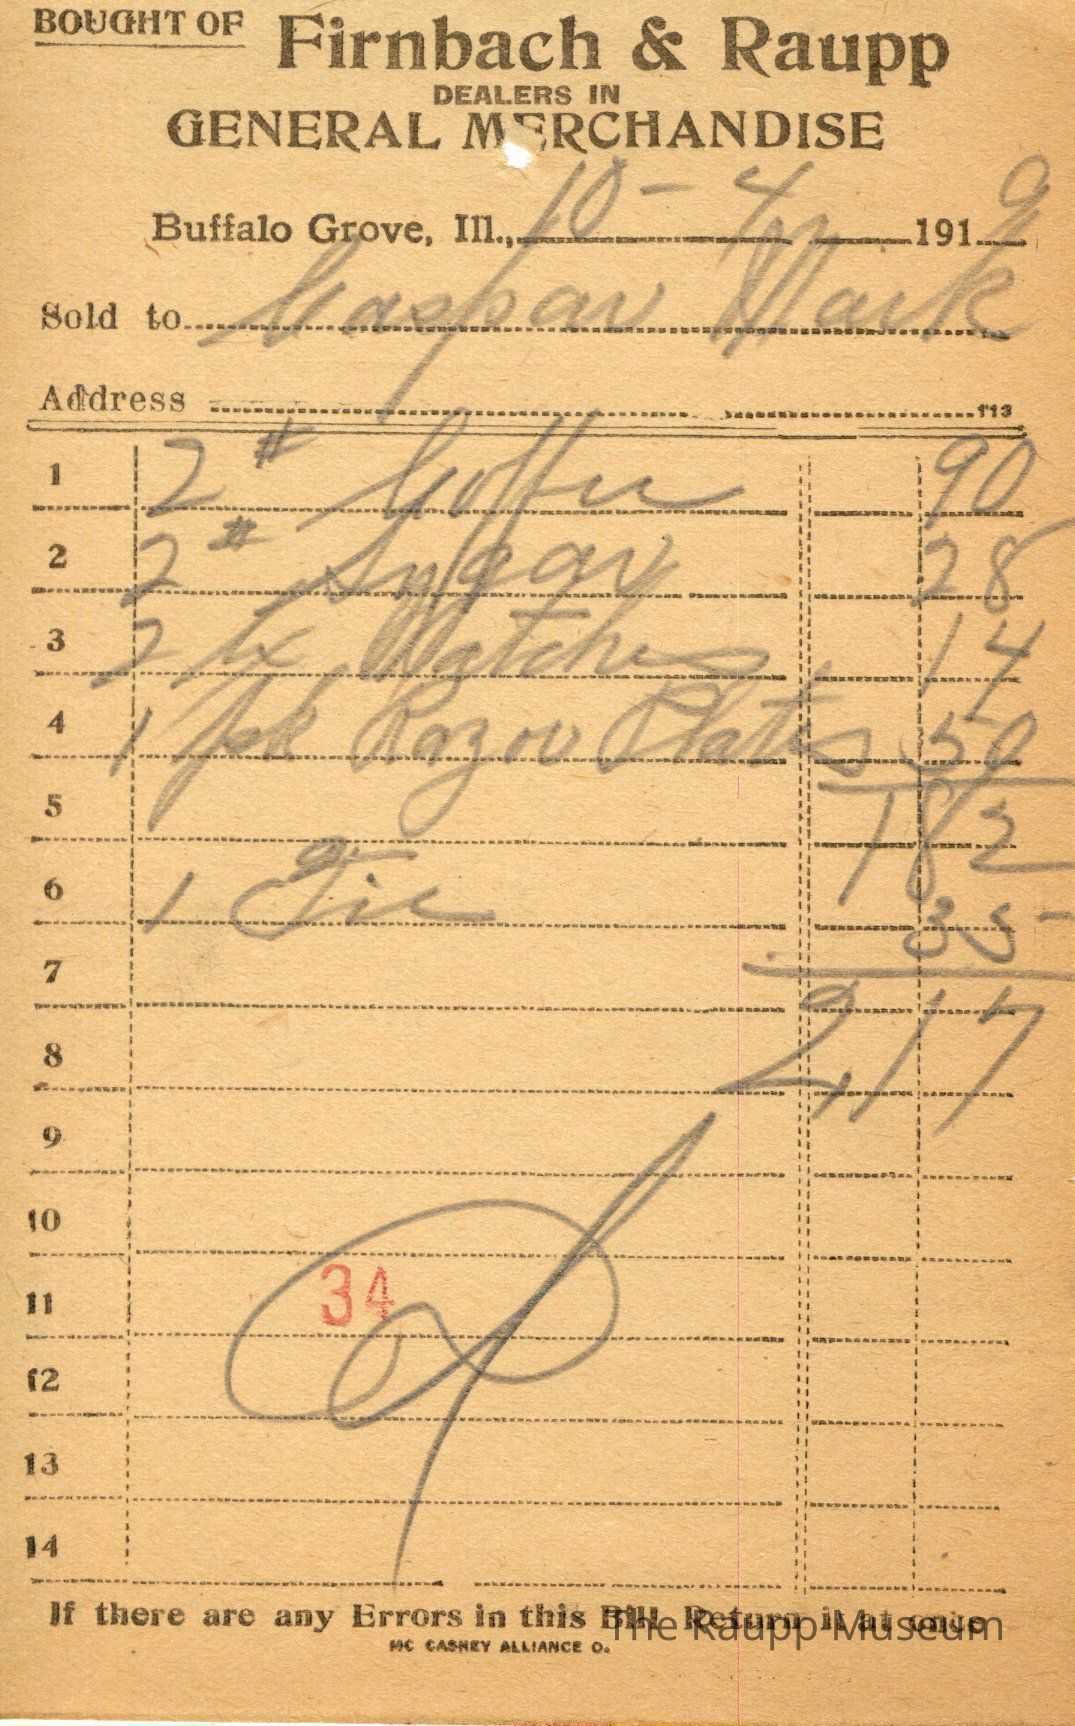 BOUGHT OF Firnbach & Raupp
DEALERS IN
GENERAL MERCHANDISE
Buffalo Grove, Ill., 10-4 1919
Sold to Caspar Mark
Address
113
1 2 # Coffee 90
2 2 # Sugar 28
3 2 bx Matches 14
4 1 pk Razor Plates 50
5 182
6 1 Tie 35
7
8 2,17
9
10
11 34
12
13
14
If there are any Errors in this Bill Return it at once
The Raupp Museum
MC CASKEY ALLIANCE O.